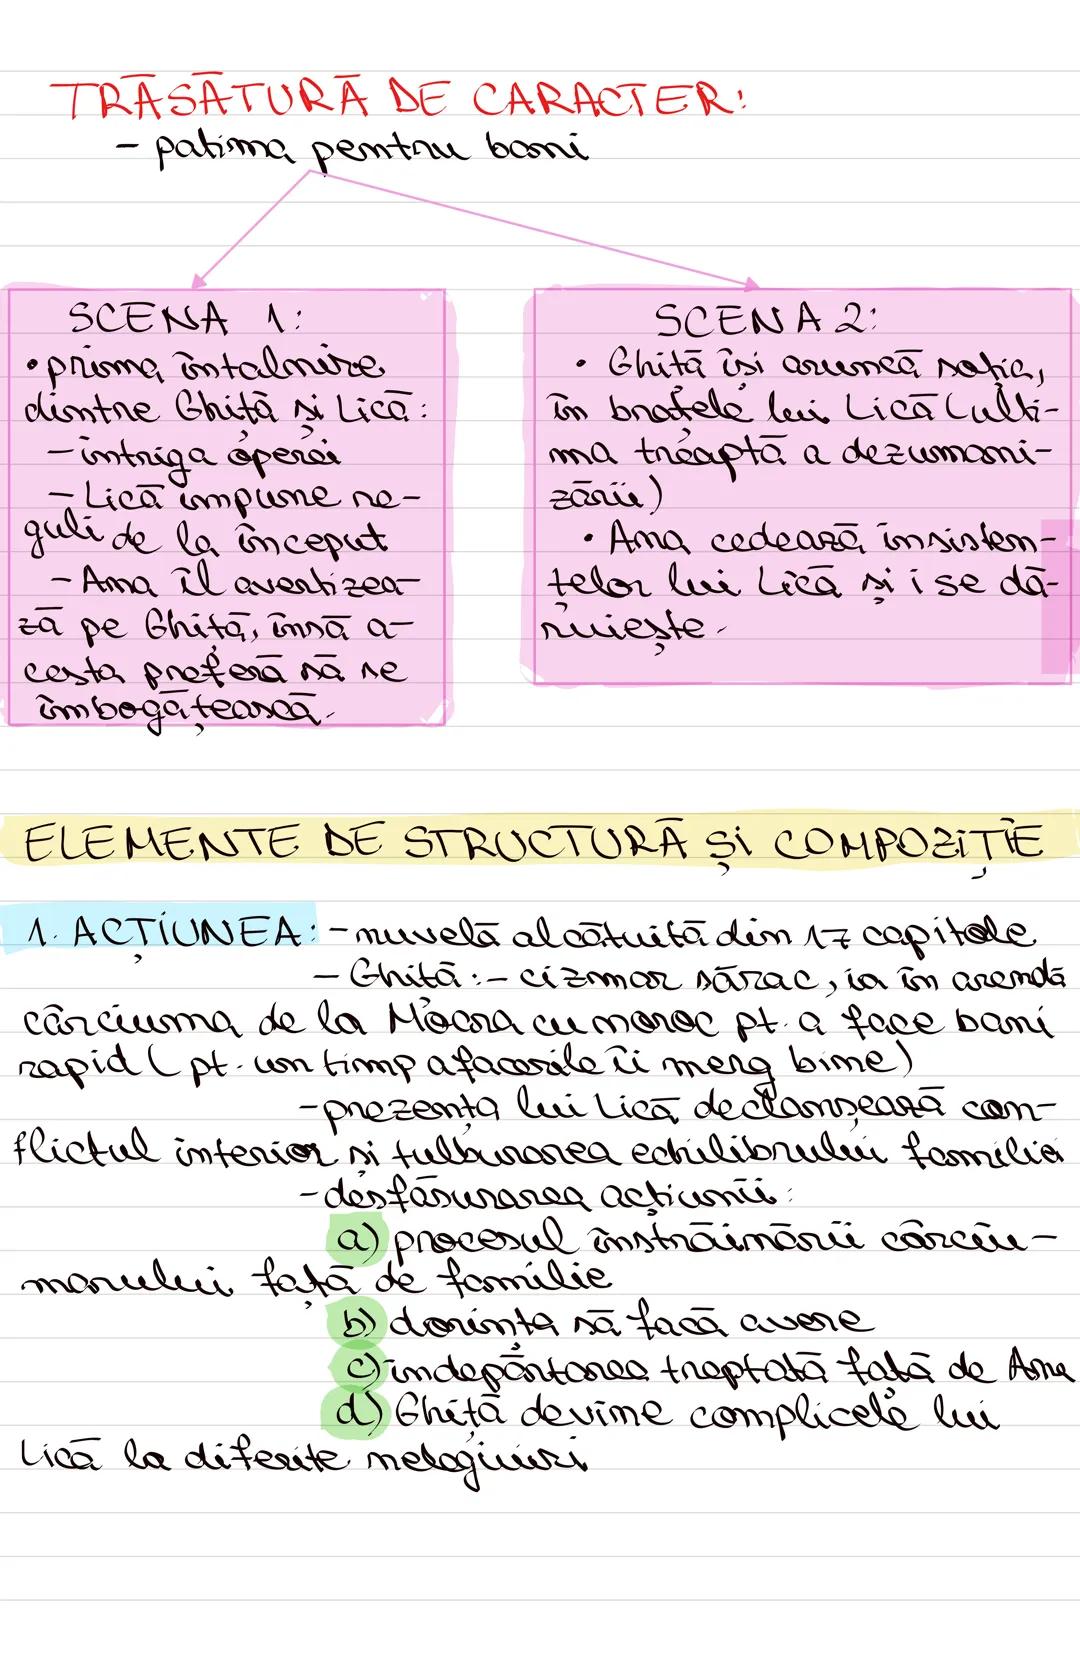 TRĂSĂTURĂ DE CARACTER:
- patima pentru bani
SCENA 1:
• prima întâlnire
dintre Ghiță și Lică:
- intriga operei
- Lică impune re-
guli de la început
- Ana îl avertizea-
ză pe Ghiță, însă a-
cesta preferă să se
îmbogățească.
SCENA 2:
• Ghiță își aruncă soția,
în brațele lui Lică (ulti-
ma treaptă a dezumani-
zării)
• Ana cedează insisten-
telor lui Lică și i se dă-
ruiește.
ELEMENTE DE STRUCTURĂ ȘI COMPOZIȚIE
1. ACȚIUNEA: - nuvelă alcătuită din 17 capitole
- Ghiță: - cizmar sărac, ia în arendă
cârciuma de la Moara cu noroc pt. a face bani
rapid (pt. un timp afacerile îi merg bine)
- prezența lui Lică declanșează con-
flictul interior și tulburarea echilibrului familiei
- desfășurarea acțiunii:
a) procesul înstrăinării cârciu-
marului față de familie
b) dorința să facă avere
c) îndepărtarea treptată față de Ana
d) Ghiță devine complicele lui
Lică la diferite nelegiuiri